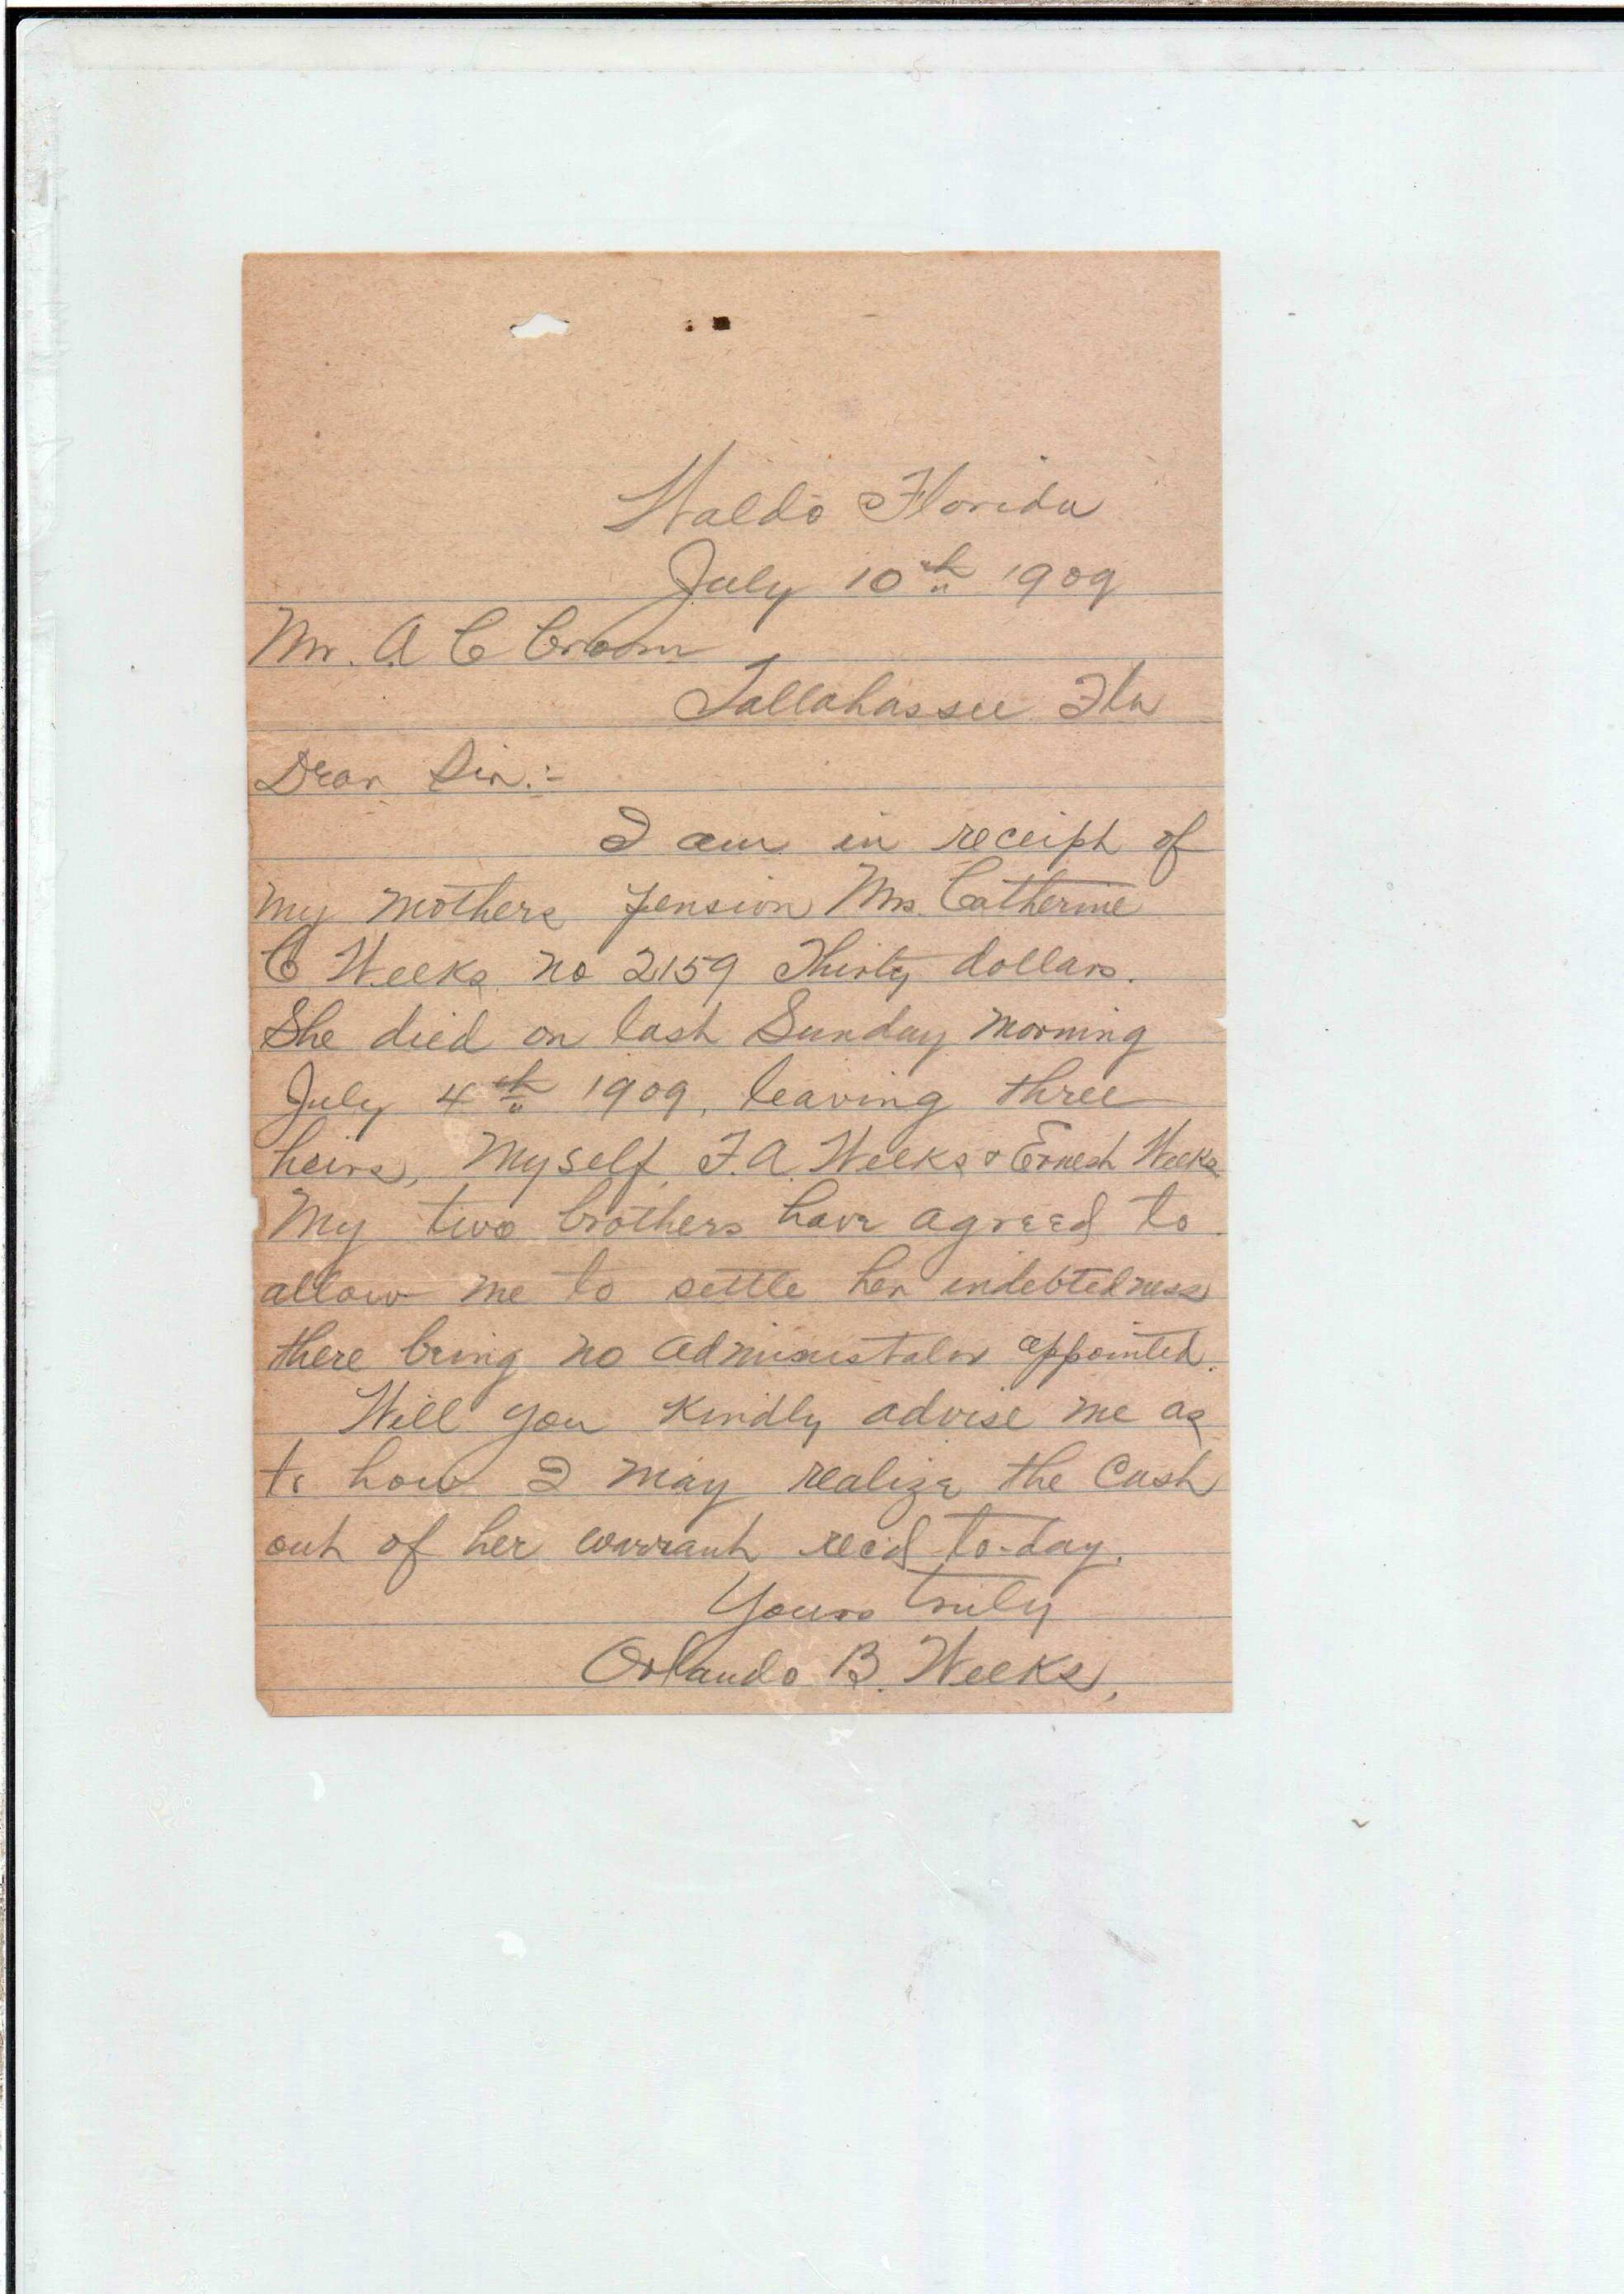 Waldo Florida
July 10th 1909
Mr. A C Croom
Tallahassee Fla
Dear Sir:-
I am in receipt of
my mothers pension Mrs. Catherine
C Weeks no 2159 Thirty dollars.
She died on last Sunday morning
July 4th 1909, leaving three
heirs, Myself, F.A. Weeks & Ernest Weeks
My two brothers have agreed to
allow me to settle her indebtedness
there being no administator appointed.
Will you kindly advise me as
to how I may realize the cash
out of her warrant rec'd to-day.
Yours truly
Orlando B. Weeks,